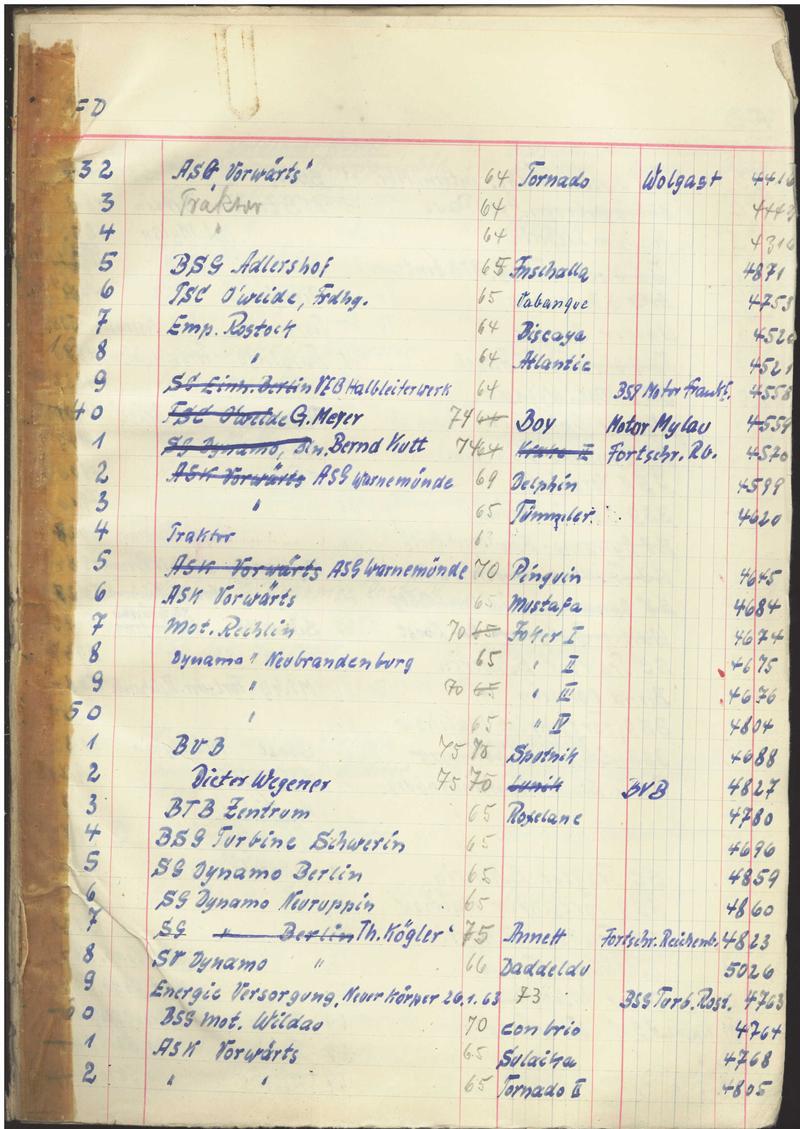 FD
32 ASG Vorwärts" 64 Tornado Wolgast 4416
3 Traktor 64 444
4 " 64 4316
5 BSG Adlershof 65 Inschalla 4871
6 TSC O'weide, Frdhg. 65 Vabanque 4753
7 Emp. Rostock 64 Biscaya 452
8 " 64 Atlantic 4521
9 SC Einh. Berlin VEB Halbleiterwerk 64 BSG Motor Frankf. 4558
40 TSC O'weide G. Meyer 74 64 Boy Motor Mylau 4559
1 SG Dynamo, Bln, Bernd Kutt 74 64 II Fortschr. Rb. 4570
2 ASK Vorwärts ASG Warnemünde 69 Delphin 4599
3 " 65 Tümmler 4620
4 Traktor 63
5 ASK Vorwärts ASG Warnemünde 70 Pinguin 4645
6 ASK Vorwärts 65 Mustafa 4684
7 Mot. Rechlin 70 65 I 4674
8 Dynamo " Neubrandenburg 65 " II 4675
9 " 70 65 " III 4676
50 " 65 " IV 4804
1 BVB 75 70 Sputnik 4688
2 Dieter Wegener 75 70 Lunik BVB 4827
3 BTB Zentrum 65 Roxelane 4780
4 BSG Turbine Schwerin 65 4696
5 SG Dynamo Berlin 65 4859
6 SG Dynamo Neuruppin 65 4860
7 SG " Berlin Th. Kögler 75 Annett Fortschr. Reichenb. 4823
8 SV Dynamo " 66 Daddeldu 5026
9 Energie Versorgung, Neuer Körper 26.1.63 73 BSG Turb. Rost. 4763
0 BSG Mot. Wildau 70 con brio 4764
1 ASK Vorwärts 65 Suleika 4768
2 " " 65 Tornado II 4805